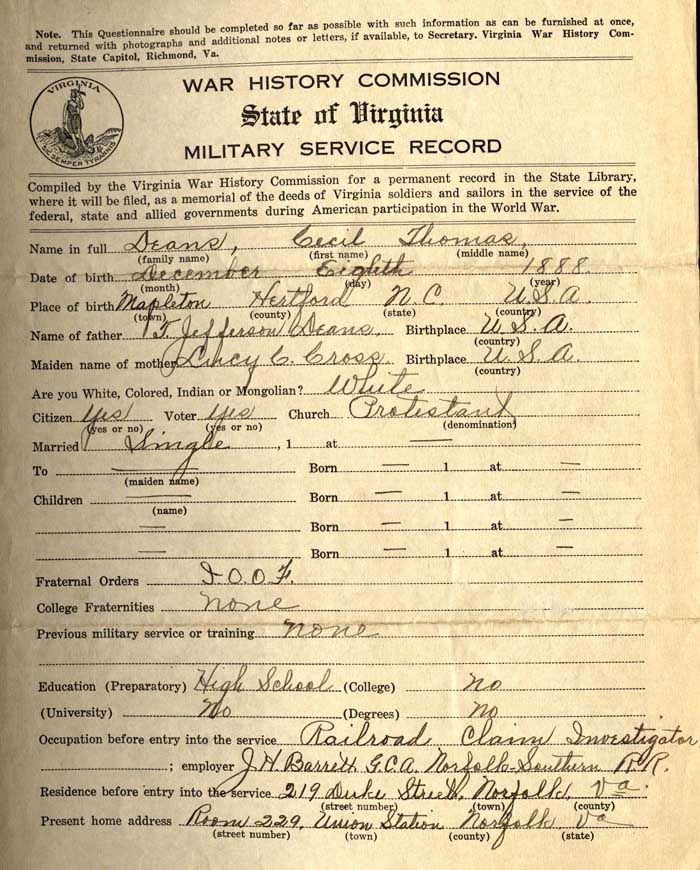 Note. This Questionnaire should be completed so far as possible with such information as can be furnished at once,
and returned with photographs and additional notes or letters, if available, to Secretary. Virginia War History Com-
mission, State Capitol, Richmond, Va.
VIRGINIA
SIC SEMPER TYRANNIS
WAR HISTORY COMMISSION
State of Virginia
MILITARY SERVICE RECORD
Compiled by the Virginia War History Commission for a permanent record in the State Library,
where it will be filed, as a memorial of the deeds of Virginia soldiers and sailors in the service of the
federal, state and allied governments during American participation in the World War.
Name in full Deans, Cecil Thomas,
(family name) (first name) (middle name)
Date of birth December Eighth 1888.
(month) (day) (year)
Place of birth Mapleton Hertford N.C. U.S.A.
(town) (county) (state) (country)
Name of father T. Jefferson Deans, Birthplace U.S.A.
(country)
Maiden name of mother Lucy C. Cross Birthplace U.S.A.
(country)
Are you White, Colored, Indian or Mongolian? White
Citizen Yes Voter Yes Church Protestant
(yes or no) (yes or no) (denomination)
Married Single , 1 at —
To — Born — 1 at —
(maiden name)
Children — Born — 1 at —
(name)
— Born — 1 at —
— Born — 1 at —
Fraternal Orders I.O.O.F.
College Fraternities none
Previous military service or training none
Education (Preparatory) High School (College) no
(University) No (Degrees) no
Occupation before entry into the service Railroad Claim Investigator
; employer J.H. Barrett G.C.A. Norfolk-Southern R.R.
Residence before entry into the service 219 Duke Street, Norfolk, Va.
(street number) (town) (county)
Present home address Room 229, Union Station Norfolk Va
(street number) (town) (county) (state)